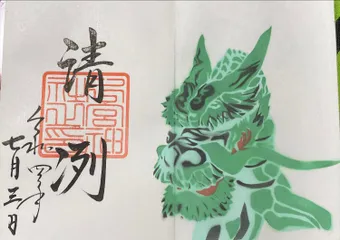 清冽
令和四年
七月三日